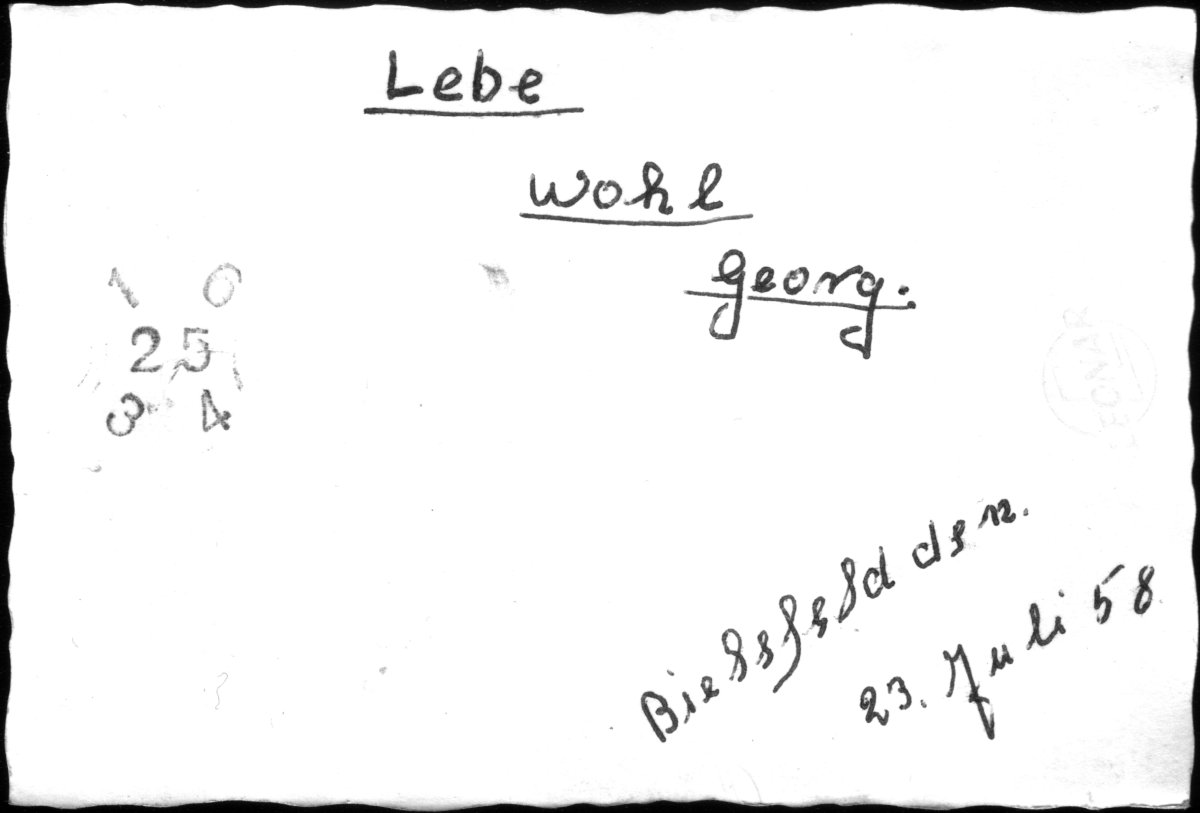 Lebe
wohl
Georg.
1 6
2 5
3 4
LEONAR
Bielefeld den.
23. Juli 58